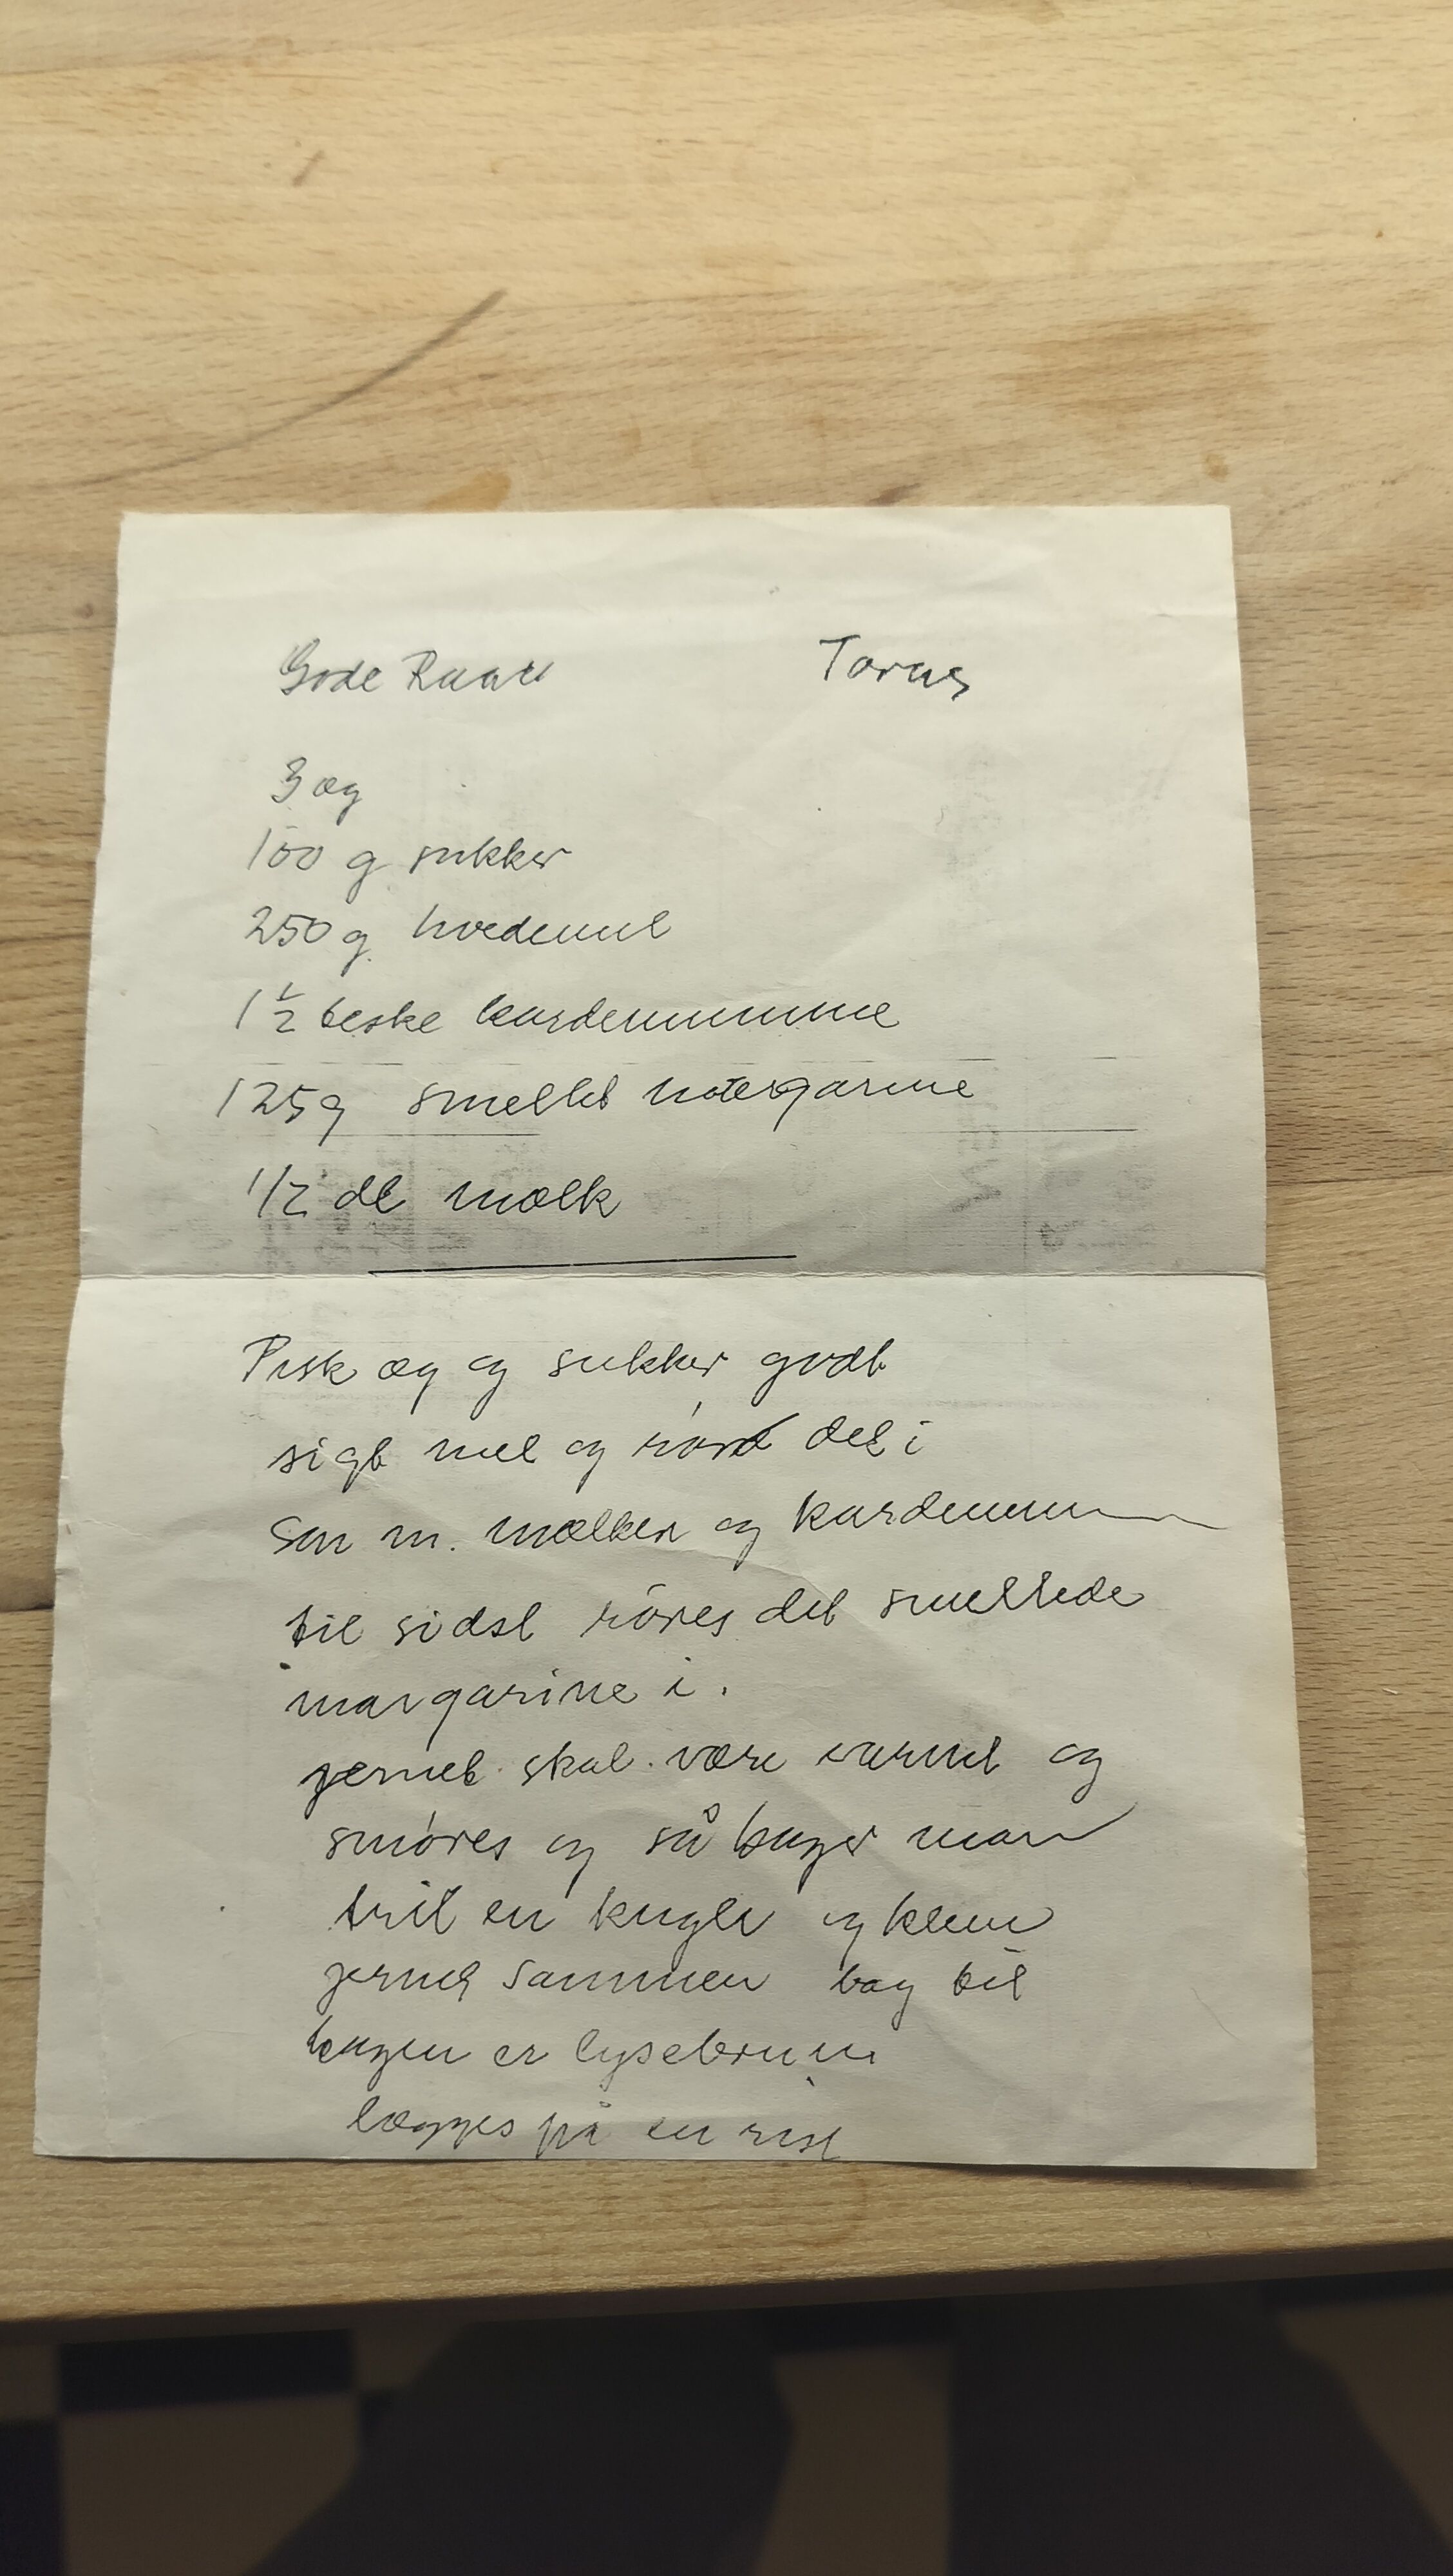 Gode Raad Tornes
3 æg
100 g sukker
250 g hvedemel
1 1/2 teske kardemumme
125 g smeltet margarine
1/2 dl mælk
Pisk æg og sukker godt
sigt mel og rørd det i
Sm m. mælken og kardemum
til sidst røres det smeltede
margarine i.
jernet skal være varmet og
smøres og så bager man
tril en kugle og klem
jernet sammen bag til
kagen er lysebrun
lægges på en rist